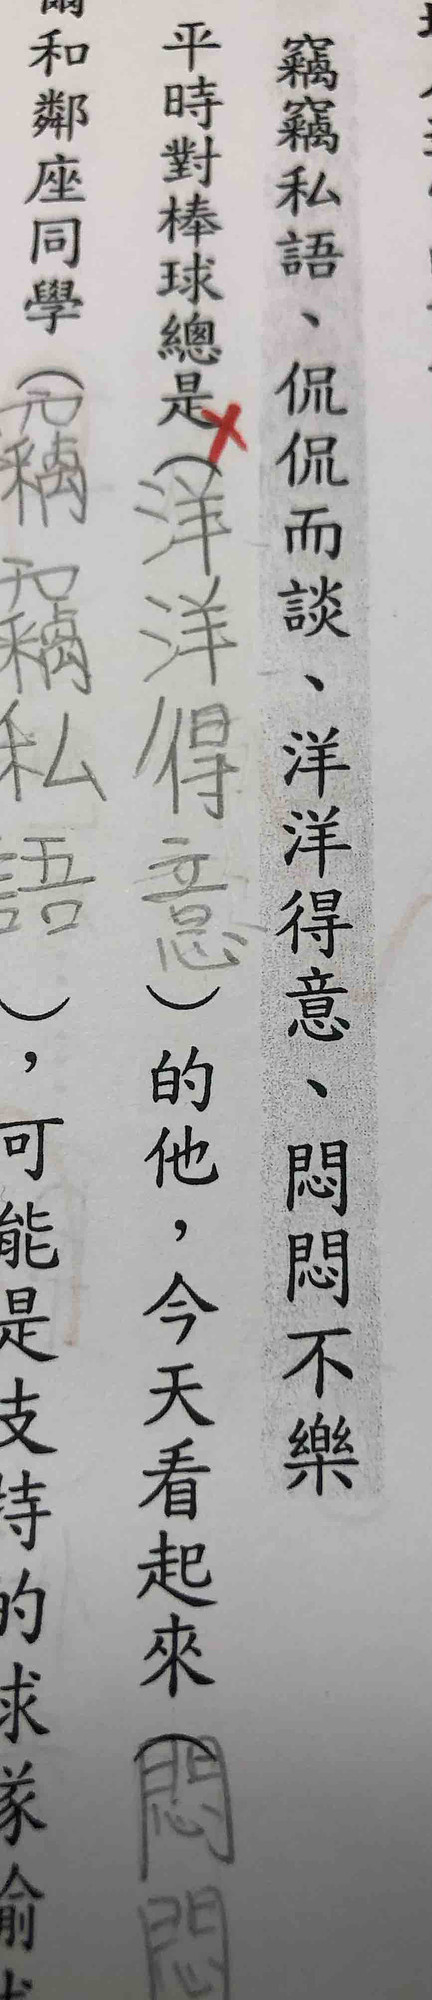 竊竊私語、侃侃而談、洋洋得意、悶悶不樂
平時對棒球總是(洋洋得意)的他，今天看起來(悶悶
和鄰座同學(竊竊私語)，可能是支持的球隊輸